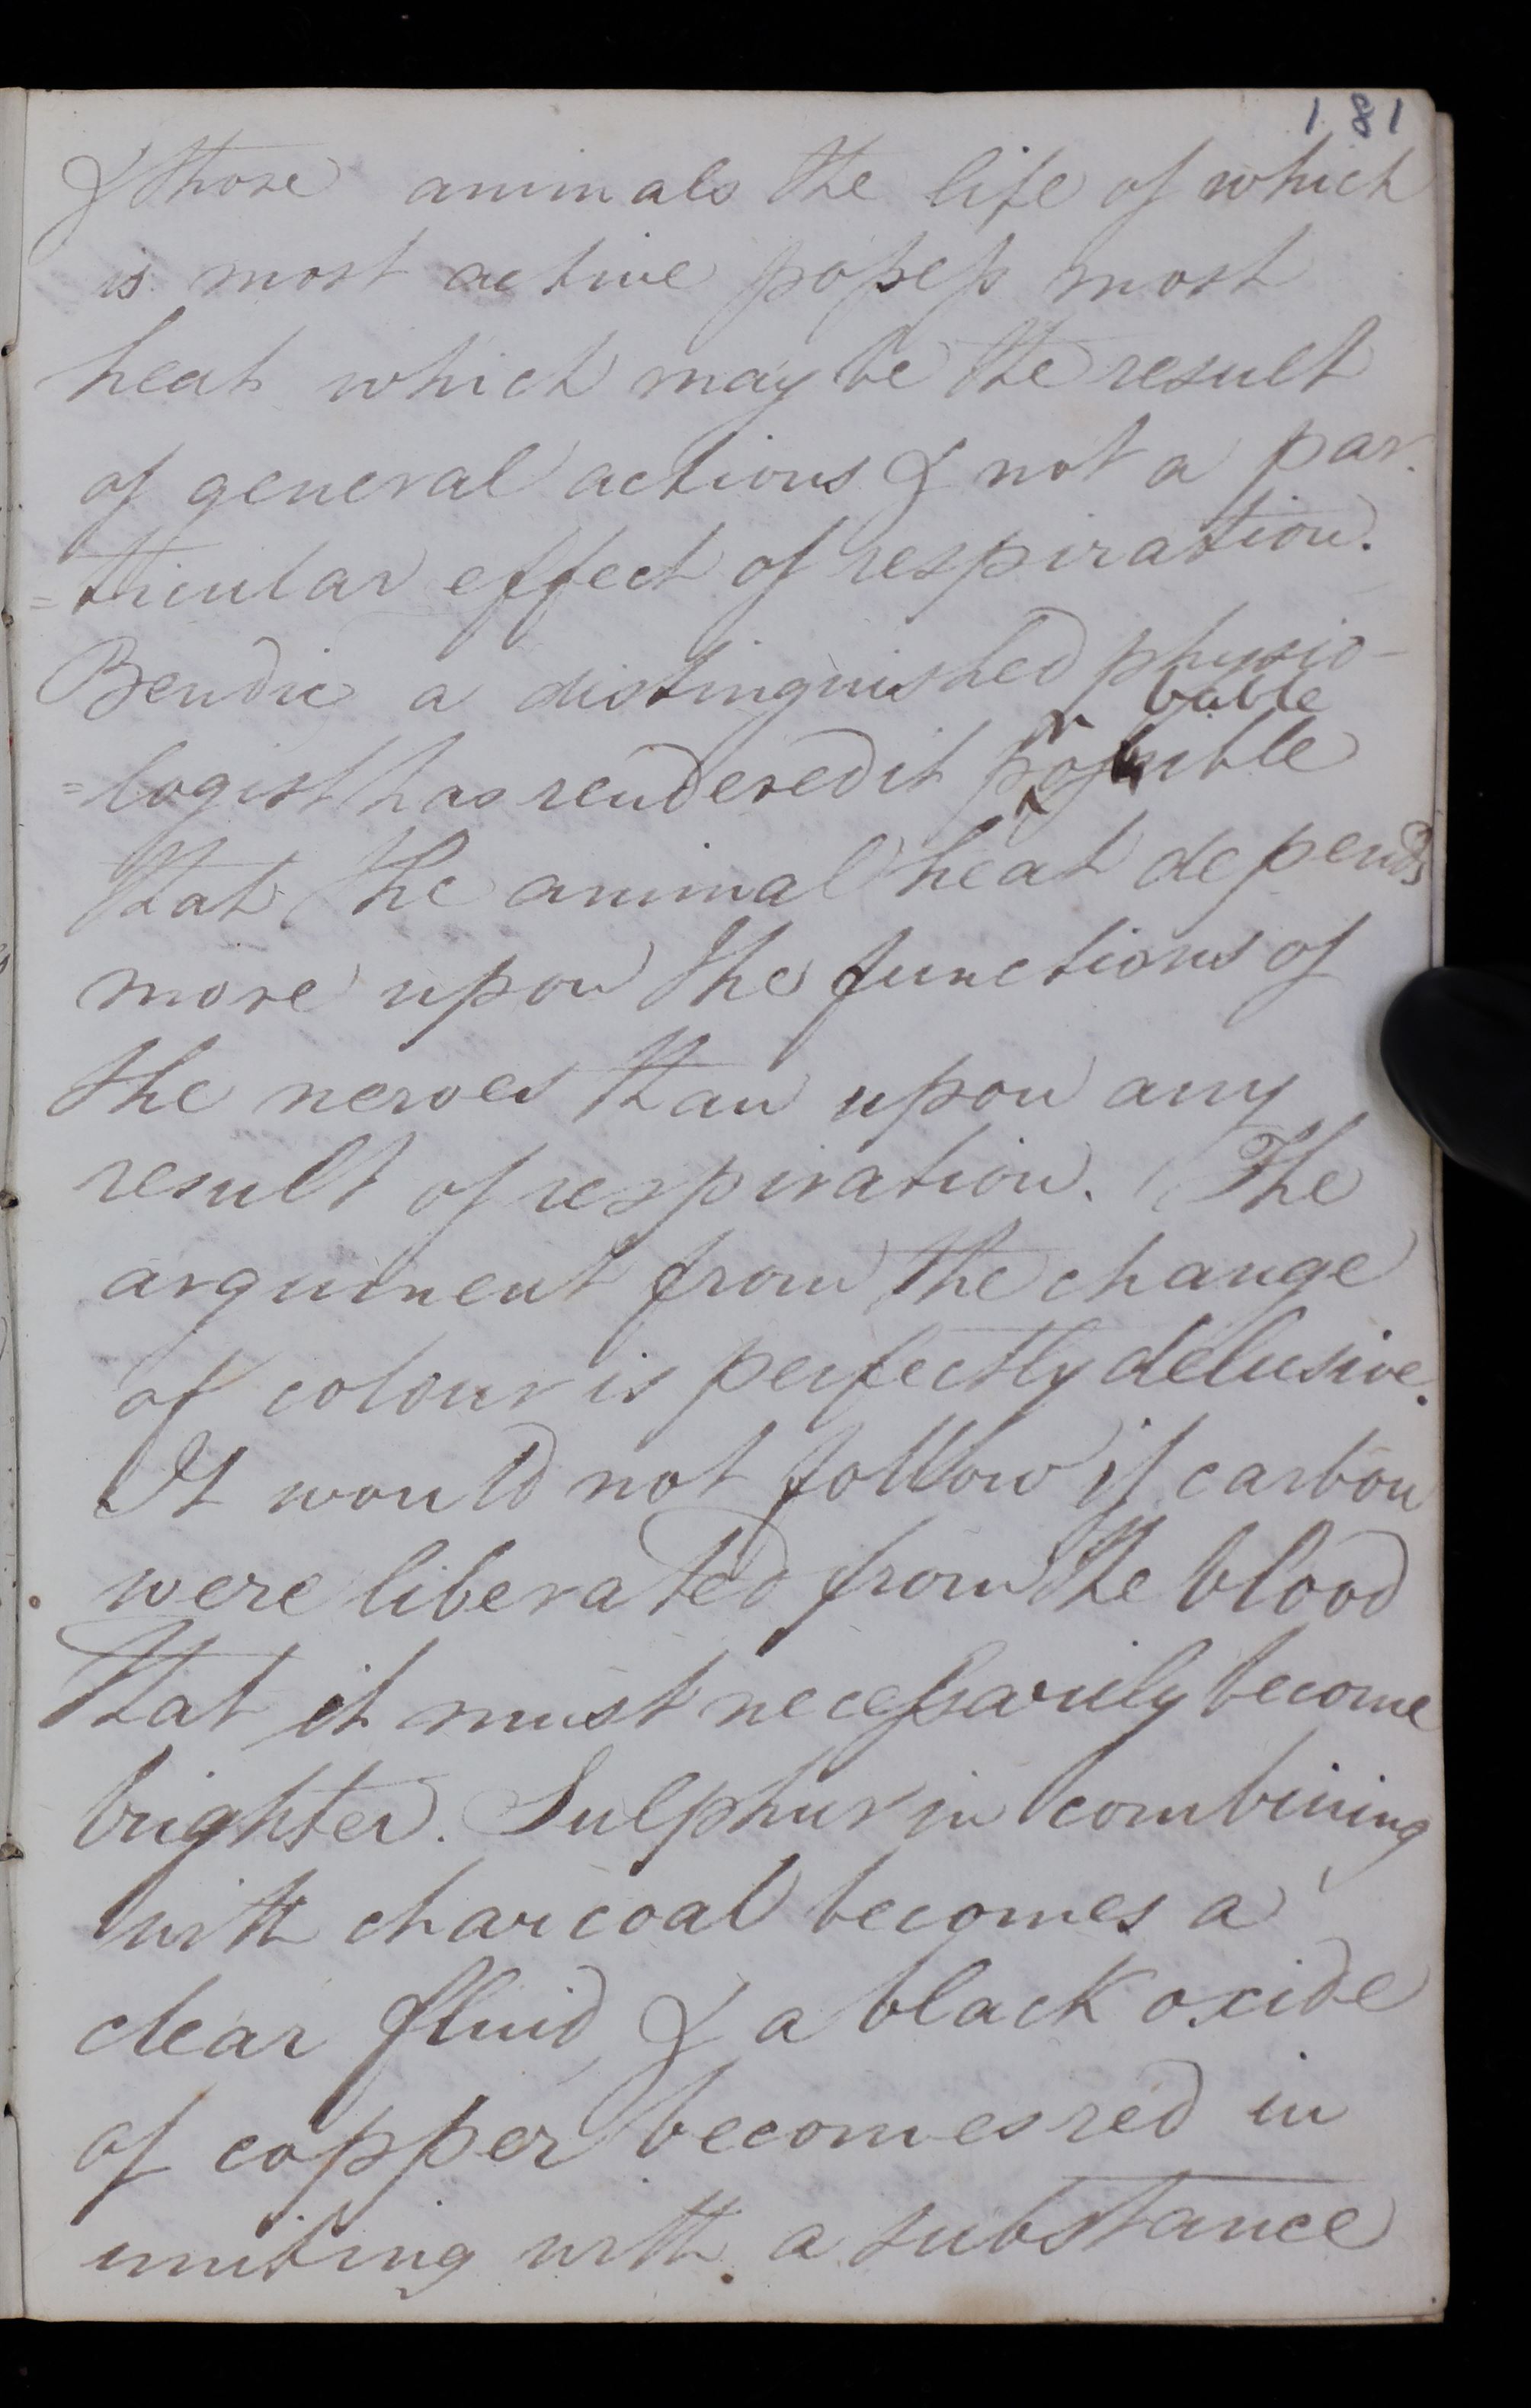 181
& those animals the life of which
is most active possess most
heat which may be the result
of general actions & not a par
=ticular effect of respiration.
Bendie a distinguished physio-
bable
=logist has rendered it possible
that the animal heat depends
more upon the functions of
the nerves than upon any
result of respiration. The
argument from the change
of colour is perfectly delusive.
It would not follow if carbon
were liberated from the blood
that it must necessarily become
brighter. Sulphur in combining
with charcoal becomes a
clear fluid, & a black oxide
of copper becomes red in
uniting with a substance